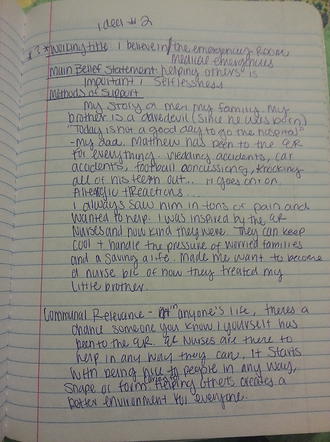 idea #2
*Working title I believe in the emergency room
Medical emergencies
Main Belief Statement: helping others is
important / Selflessness
Methods of Support
My story of men my family. My
brother is a daredevil (since he was born)
"Today is not a good day to go the hospital"
-my dad. Matthew has been to the ER
for everything. Wedding accidents, car
accidents, football concussions, knocking
all of his teeth out... it goes on & on.
Allergic reactions...
I always saw him in tons of pain and
wanted to help. I was inspired by the ER
Nurses and how kind they were. They can keep
cool & handle the pressure of worried families
and a saving a life. Made me want to become
a nurse b/c of how they treated my
little brother.
Communal Relevence - in anyone's life, theres a
chance someone you know / yourself has
been to the ER. ER Nurses are there to
help in any way they care. It starts
with being nice to people in any way,
shape or form. Helping others creates a
better environment for everyone.